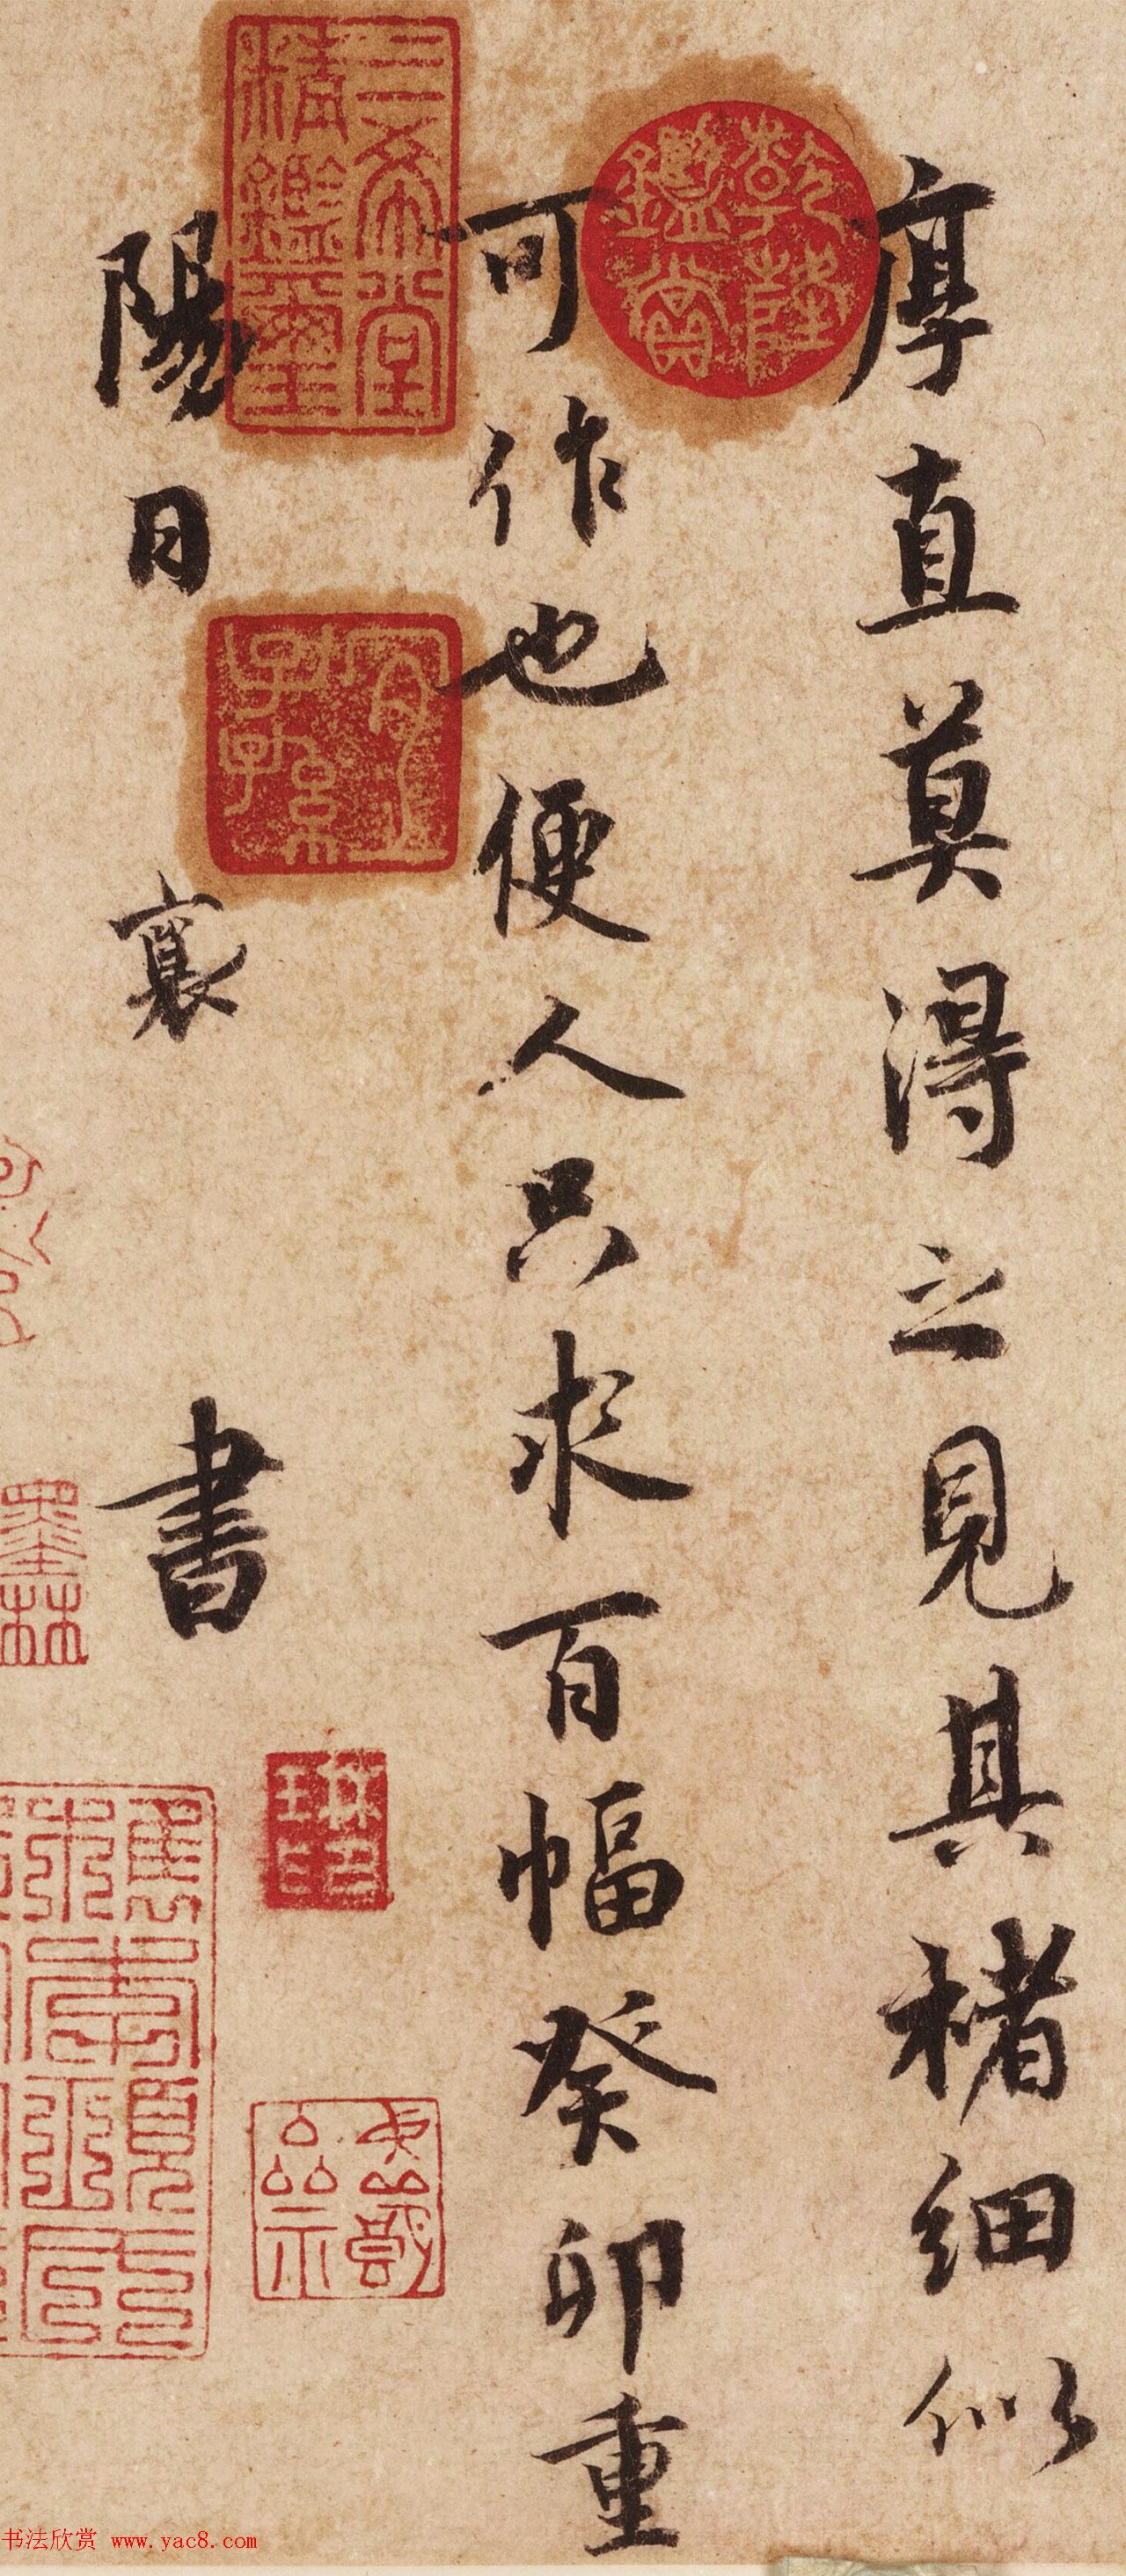 厚直莫得之見其楮細似
可作也便人只求百幅癸卯重
陽日襄書
乾隆鑑賞
三希堂精鑑璽
宜子孫
墨林
书法欣赏 www.yac8.com